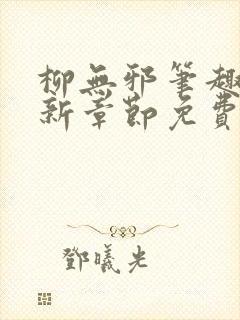 柳無邪筆趣
新章節免費
鄧曦光